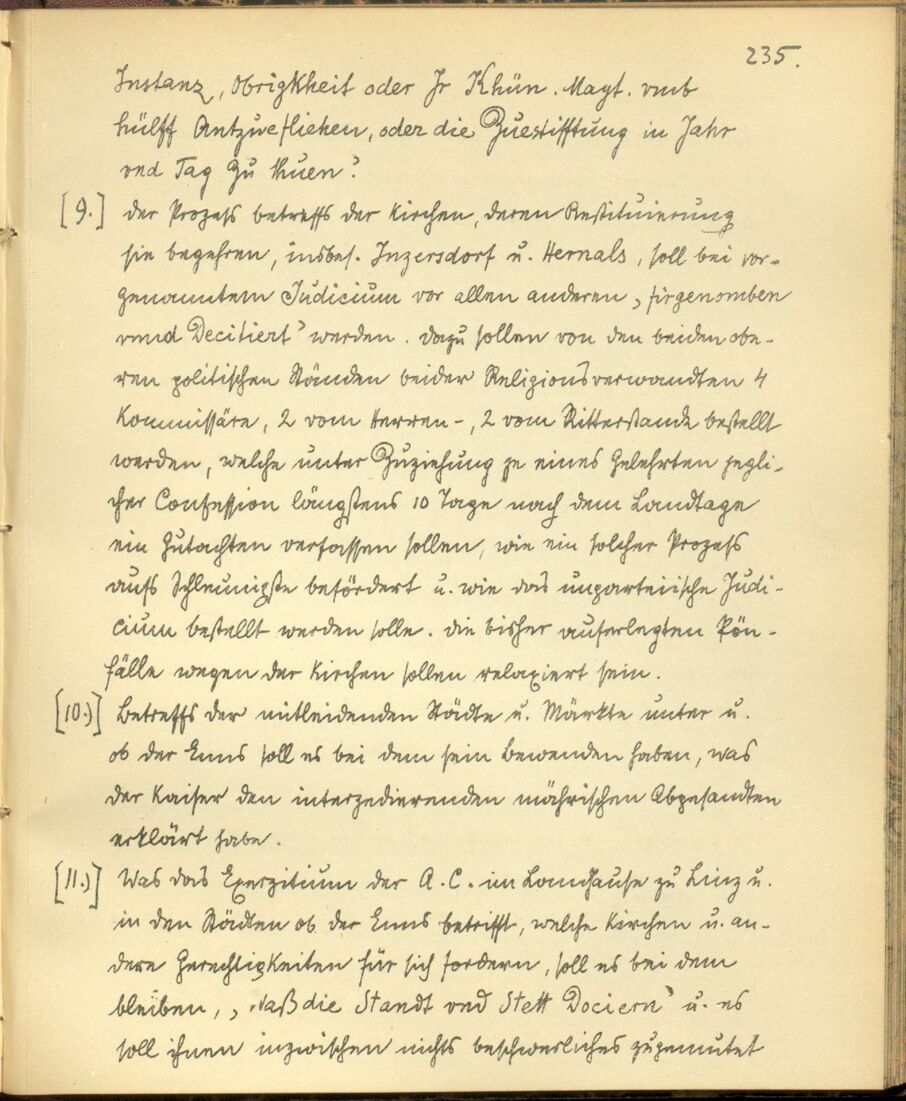 235.
Instanz, Obrigkheit oder Jr Khün. Mayt. vmb
hülff Antzuefliehen, oder die Zuestifftung in Jahr
vnd Tag Zu thuen‘.
[9.] Der Prozeß betreffs der Kirchen, deren Restituierung
sie begehren, insbes. Inzersdorf u. Hernals, soll bei vor-
genanntem Judicium vor allen anderen ‚fürgenomben
vnnd Decitiert‘ werden. Dazu sollen von den beiden obe-
ren politischen Ständen beider Religionsverwandten 4
Kommissäre, 2 vom Herren-, 2 vom Ritterstande bestellt
werden, welche unter Zuziehung je eines Gelehrten jegli-
cher Confession längstens 10 Tage nach dem Landtage
ein Gutachten verfassen sollen, wie ein solcher Prozeß
aufs Schleunigste befördert u. wie das unparteiische Judi-
cium bestellt werden solle. Die bisher auferlegten Pön-
fälle wegen der Kirchen sollen relaxiert sein.
[10.)] Betreffs der mitleidenden Städte u. Märkte unter u.
ob der Enns soll es bei dem sein Bewenden haben, was
der Kaiser den interzedierenden mährischen Abgesandten
erklärt habe.
[11.)] Was das Exerzitium der A. C. im Landhause zu Linz u.
in den Städten ob der Enns betrifft, welche Kirchen u. an-
dere Gerechtigkeiten für sich fordern, soll es bei dem
bleiben, ‚waß die Standt vnd Stett Dociern‘ u. es
soll ihnen inzwischen nichts beschwerliches zugemutet